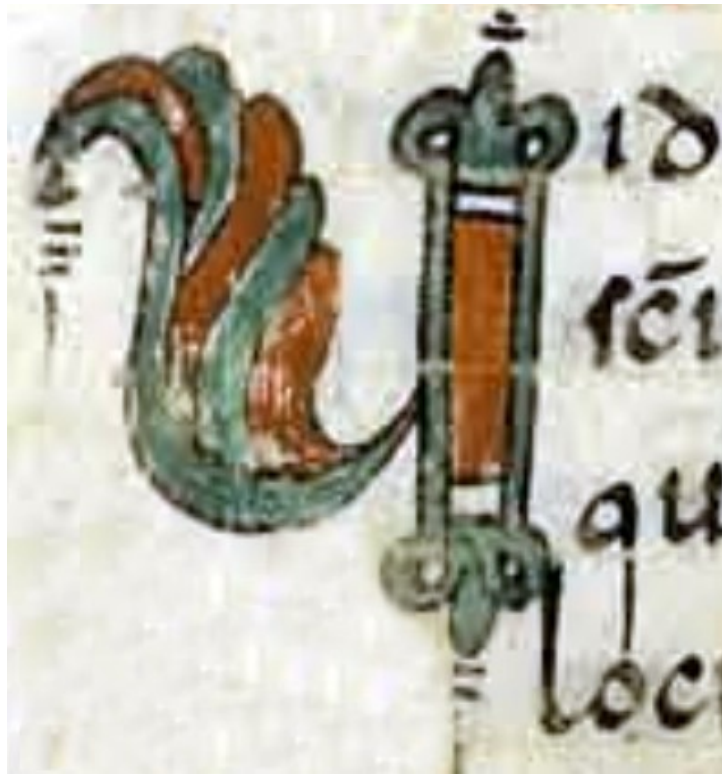 Uid
sc̄i
qu
loci